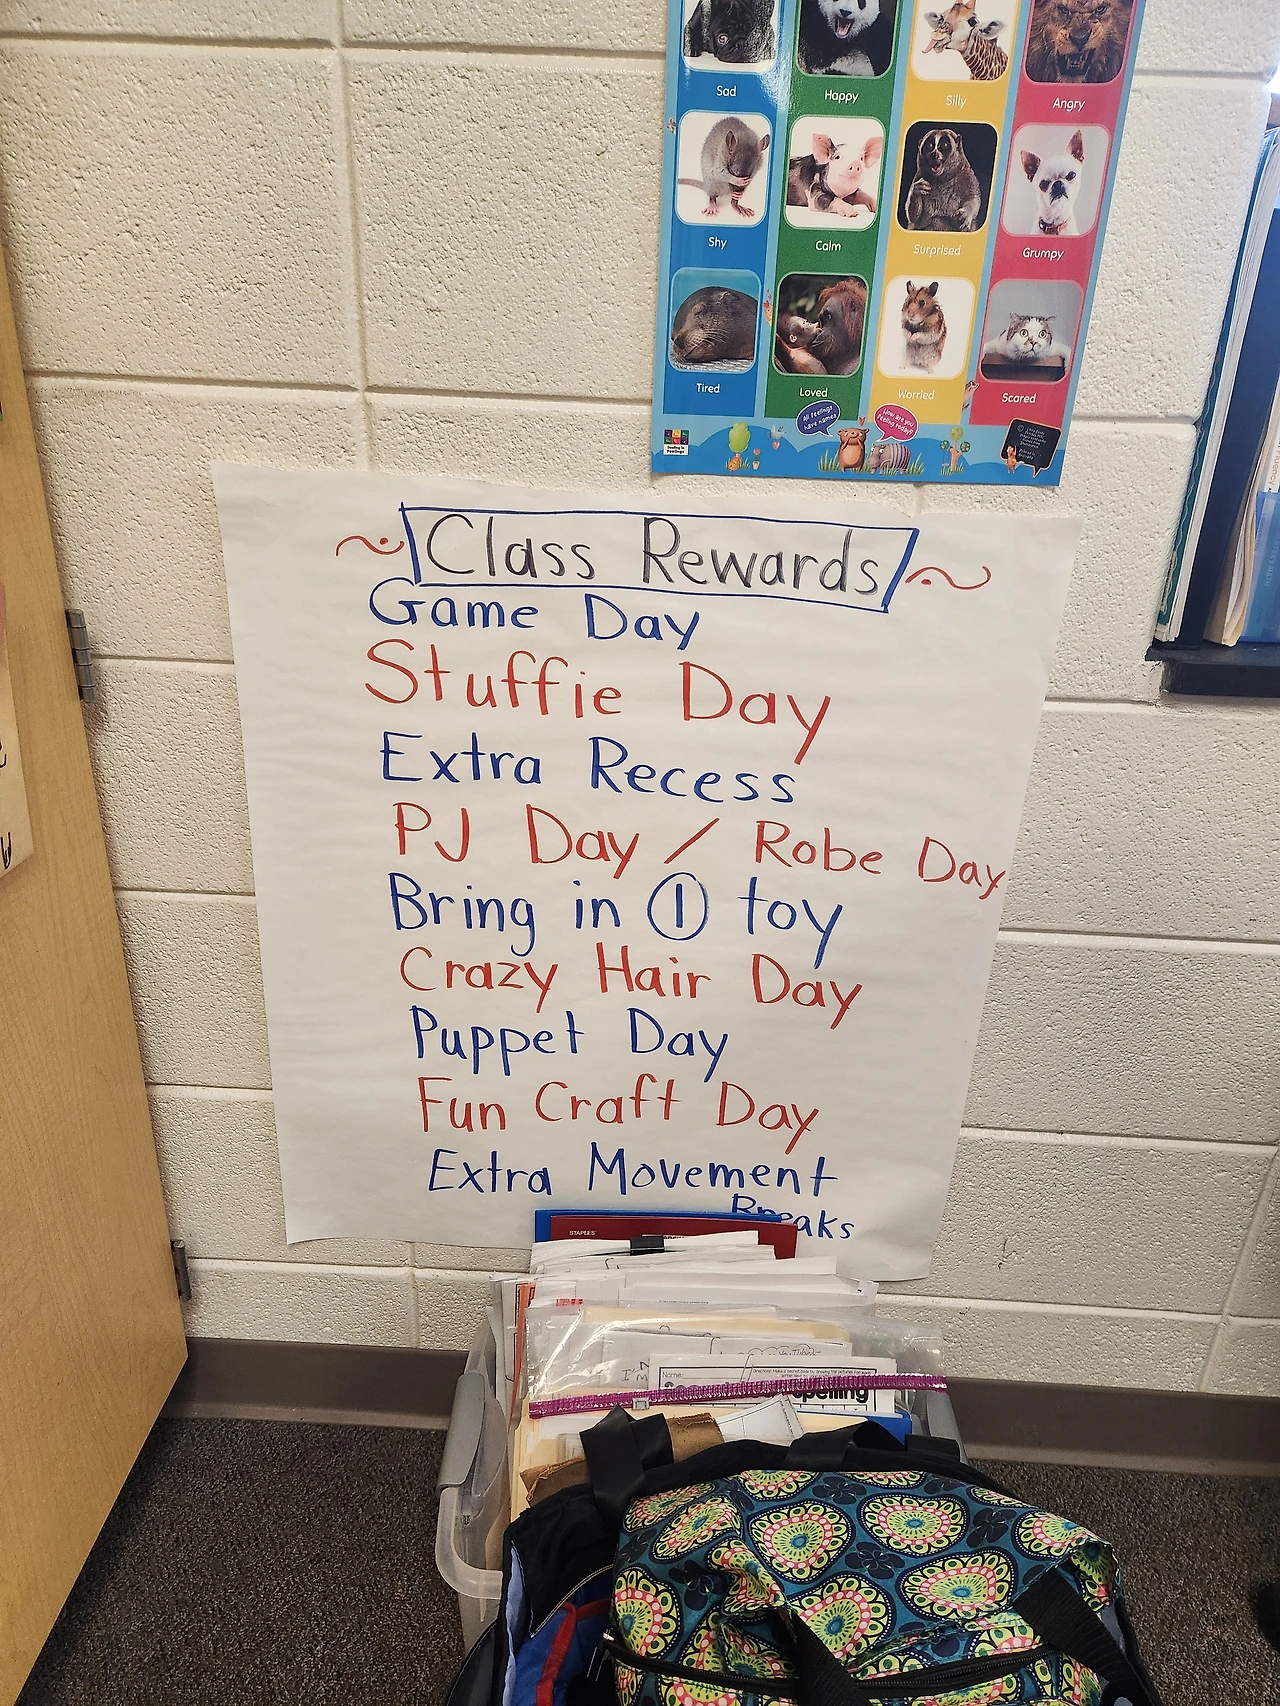 Sad Happy Silly Angry
Shy Calm Surprised Grumpy
Tired Loved Worried Scared
All feelings
have names!
How are you
feeling today?
Feelings
Class Rewards
Game Day
Stuffie Day
Extra Recess
PJ Day / Robe Day
Bring in 1 toy
Crazy Hair Day
Puppet Day
Fun Craft Day
Extra Movement
Breaks
STAPLES
Name:
spelling